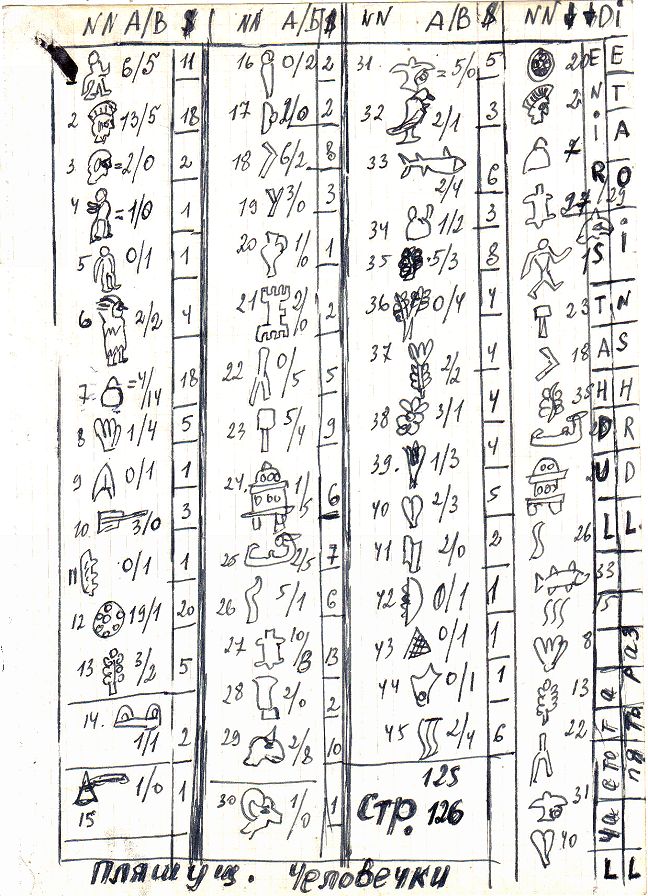 NN A/B $ NN A/Б $ NN A/B $ NN Di
6/5 11 16 0/2 2 31 = 5/0 5 E E
2 13/5 18 17 2/0 2 32 2/1 3 2 N T
3 =2/0 2 18 6/2 8 33 2/4 6 7 i A
4 =1/0 1 19 3/0 3 34 1/2 3 R O
5 0/1 1 20 1/0 1 35 5/3 8 S i
6 2/2 4 21 2/0 2 36 0/4 4 23 T N
7 =4/14 18 22 0/5 5 37 2/2 4 18 A S
8 1/4 5 23 5/4 9 38 3/1 4 35 H H
9 0/1 1 24 1/5 6 39. 1/3 4 D R
10 3/0 3 25 2/5 7 40 2/3 5 U D
11 0/1 1 26 5/1 6 41 2/0 2 26 L L
12 19/1 20 27 10/3 13 42 0/1 1 33
13 3/2 5 28 2/0 2 43 0/1 1 15
14. 1/1 2 29 2/8 10 44 0/1 1 8
15 1/0 1 30 1/0 1 45 2/4 6 13
22
31
40
125
Стр. 126
L L
Пляшущ. Человечки
часто та
пять раз